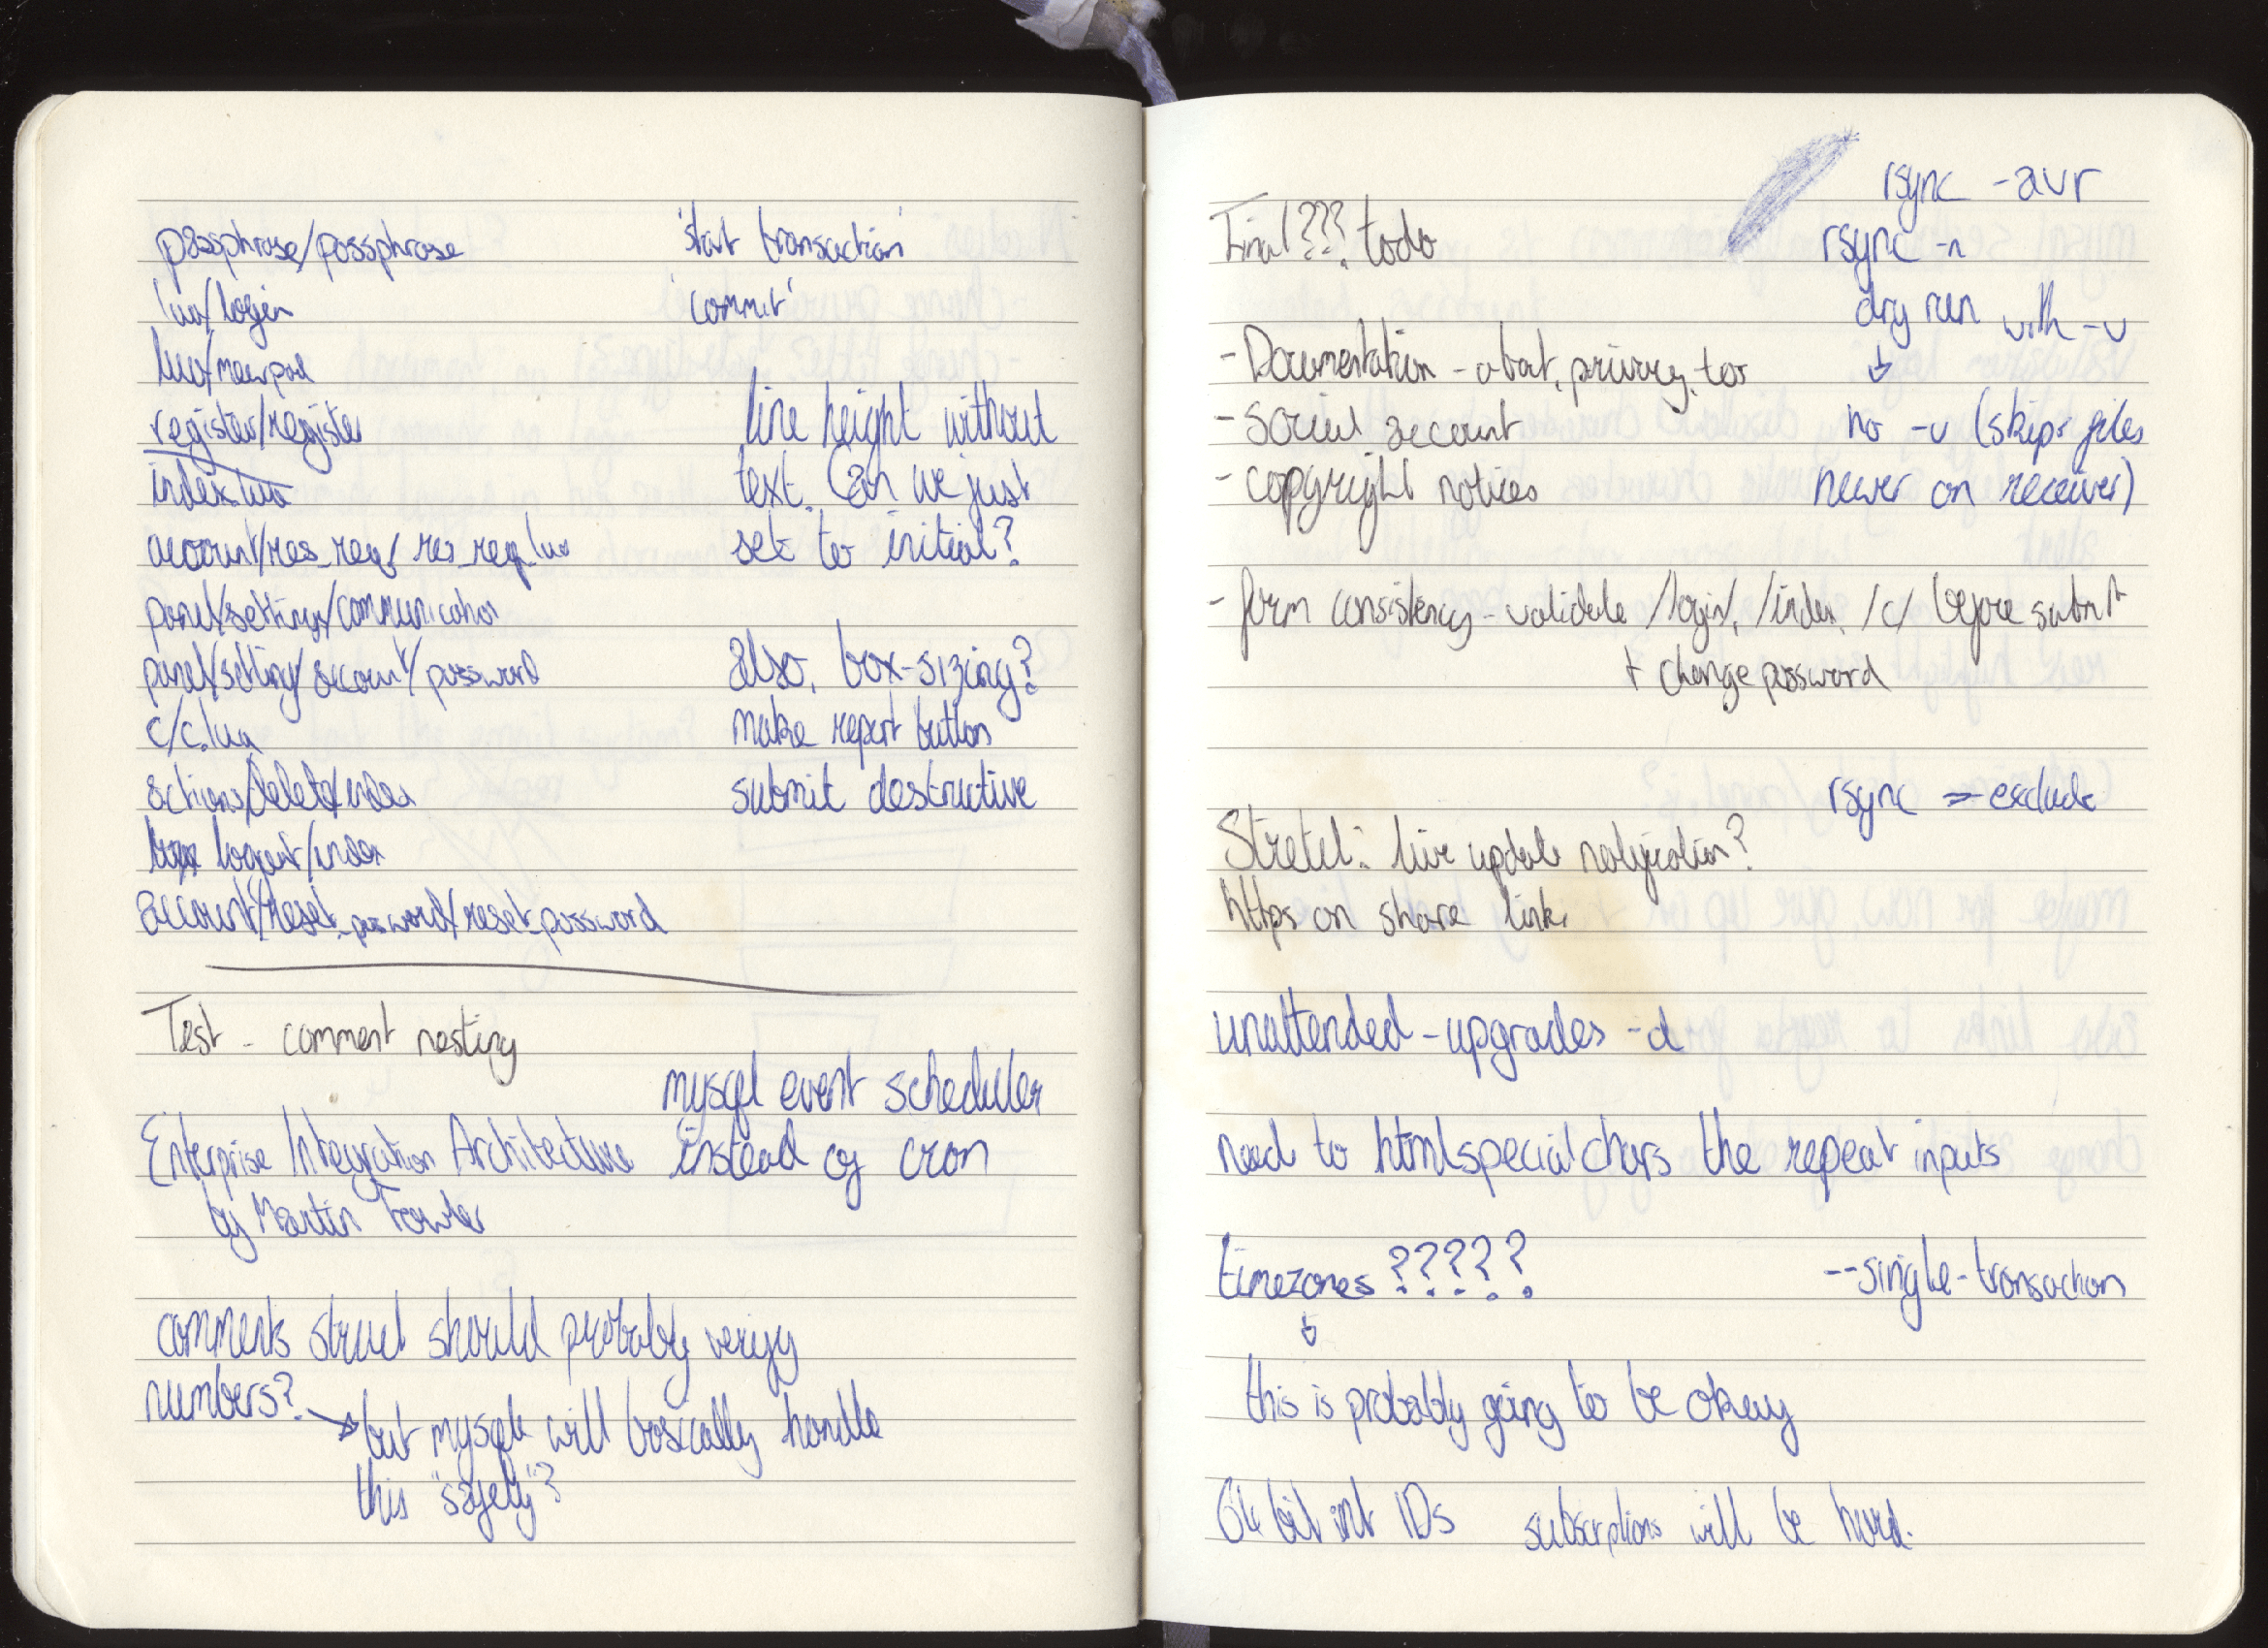 passphrase/passphrase
lua/login
lua/newpost
register/register
index.lua
account/res_req/res_req.lua
panel/settings/communication
panel/setting/account/password
c/c.lua
actions/delete/index
logout/index
account/reset_password/reset_password
'start transaction'
'commit'
line height without
text. Can we just
set to initial?
also, box-sizing?
make report button
submit destructive
Test - comment nesting
mysql event scheduler
instead of cron
Enterprise Integration Architecture
by Martin Fowler
comments struct should probably verify
numbers?
but mysql will basically handle
this "safely"?
Final???. todo
rsync -avr
rsync -n
dry run with -v
no -u (skips files
newer on receiver)
- Documentation - about, privacy, tos
- social account
- copyright notices
- form consistency - validate /login/, /index, /c/ before submit
+ change password
rsync --exclude
Stretch: live update notification?
https on share link
unattended-upgrades -d
need to htmlspecialchars the repeat inputs
timezones ?????
--single-transaction
this is probably going to be okay
64 bit int IDs subscriptions will be hard.